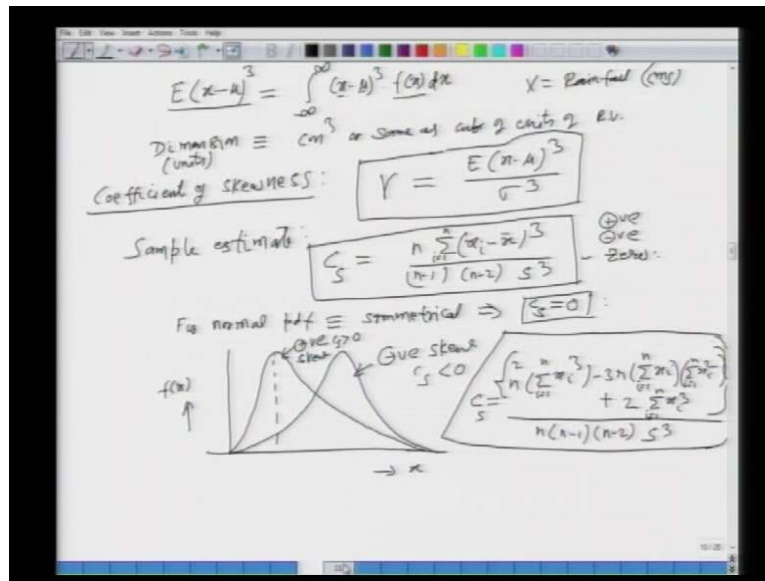 File Edit View Insert Actions Tools Help
E(x-μ)³ = ∫_{-∞}^{∞} (x-μ)³ f(x) dx X = Rainfall (cms)
Dimension ≡ cm³ or same as cube of units of R.V.
(units)
Coefficient of skewness: γ = E(x-μ)³ / σ³
Sample estimate: C_s = n Σ_{i=1}^{n} (x_i - x̄)³ / (n-1) (n-2) s³ - ⊕ve ⊖ve zero:
For normal pdf ≡ symmetrical ⇒ C_s = 0 :
⊕ve C_s>0
skew
⊖ve skew
C_s < 0
f(x)
C_s = {n² (Σ_{i=1}^{n} x_i³) - 3n (Σ_{i=1}^{n} x_i) (Σ_{i=1}^{n} x_i²) + 2 Σ_{i=1}^{n} x_i³} / n(n-1) (n-2) s³
→ x